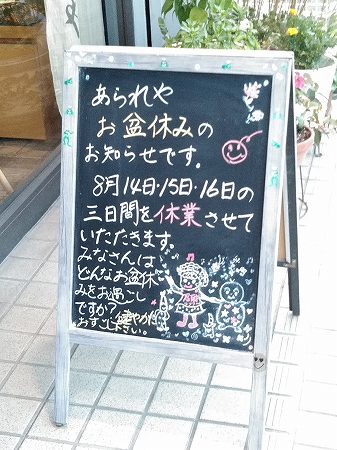 あられや
お盆休みの
お知らせです。
8月14日・15日・16日の
三日間を休業させて
いただきます。
みなさんは
どんなお盆休
みをお過ごし
ですか?
健やかに
おすごし下さい。